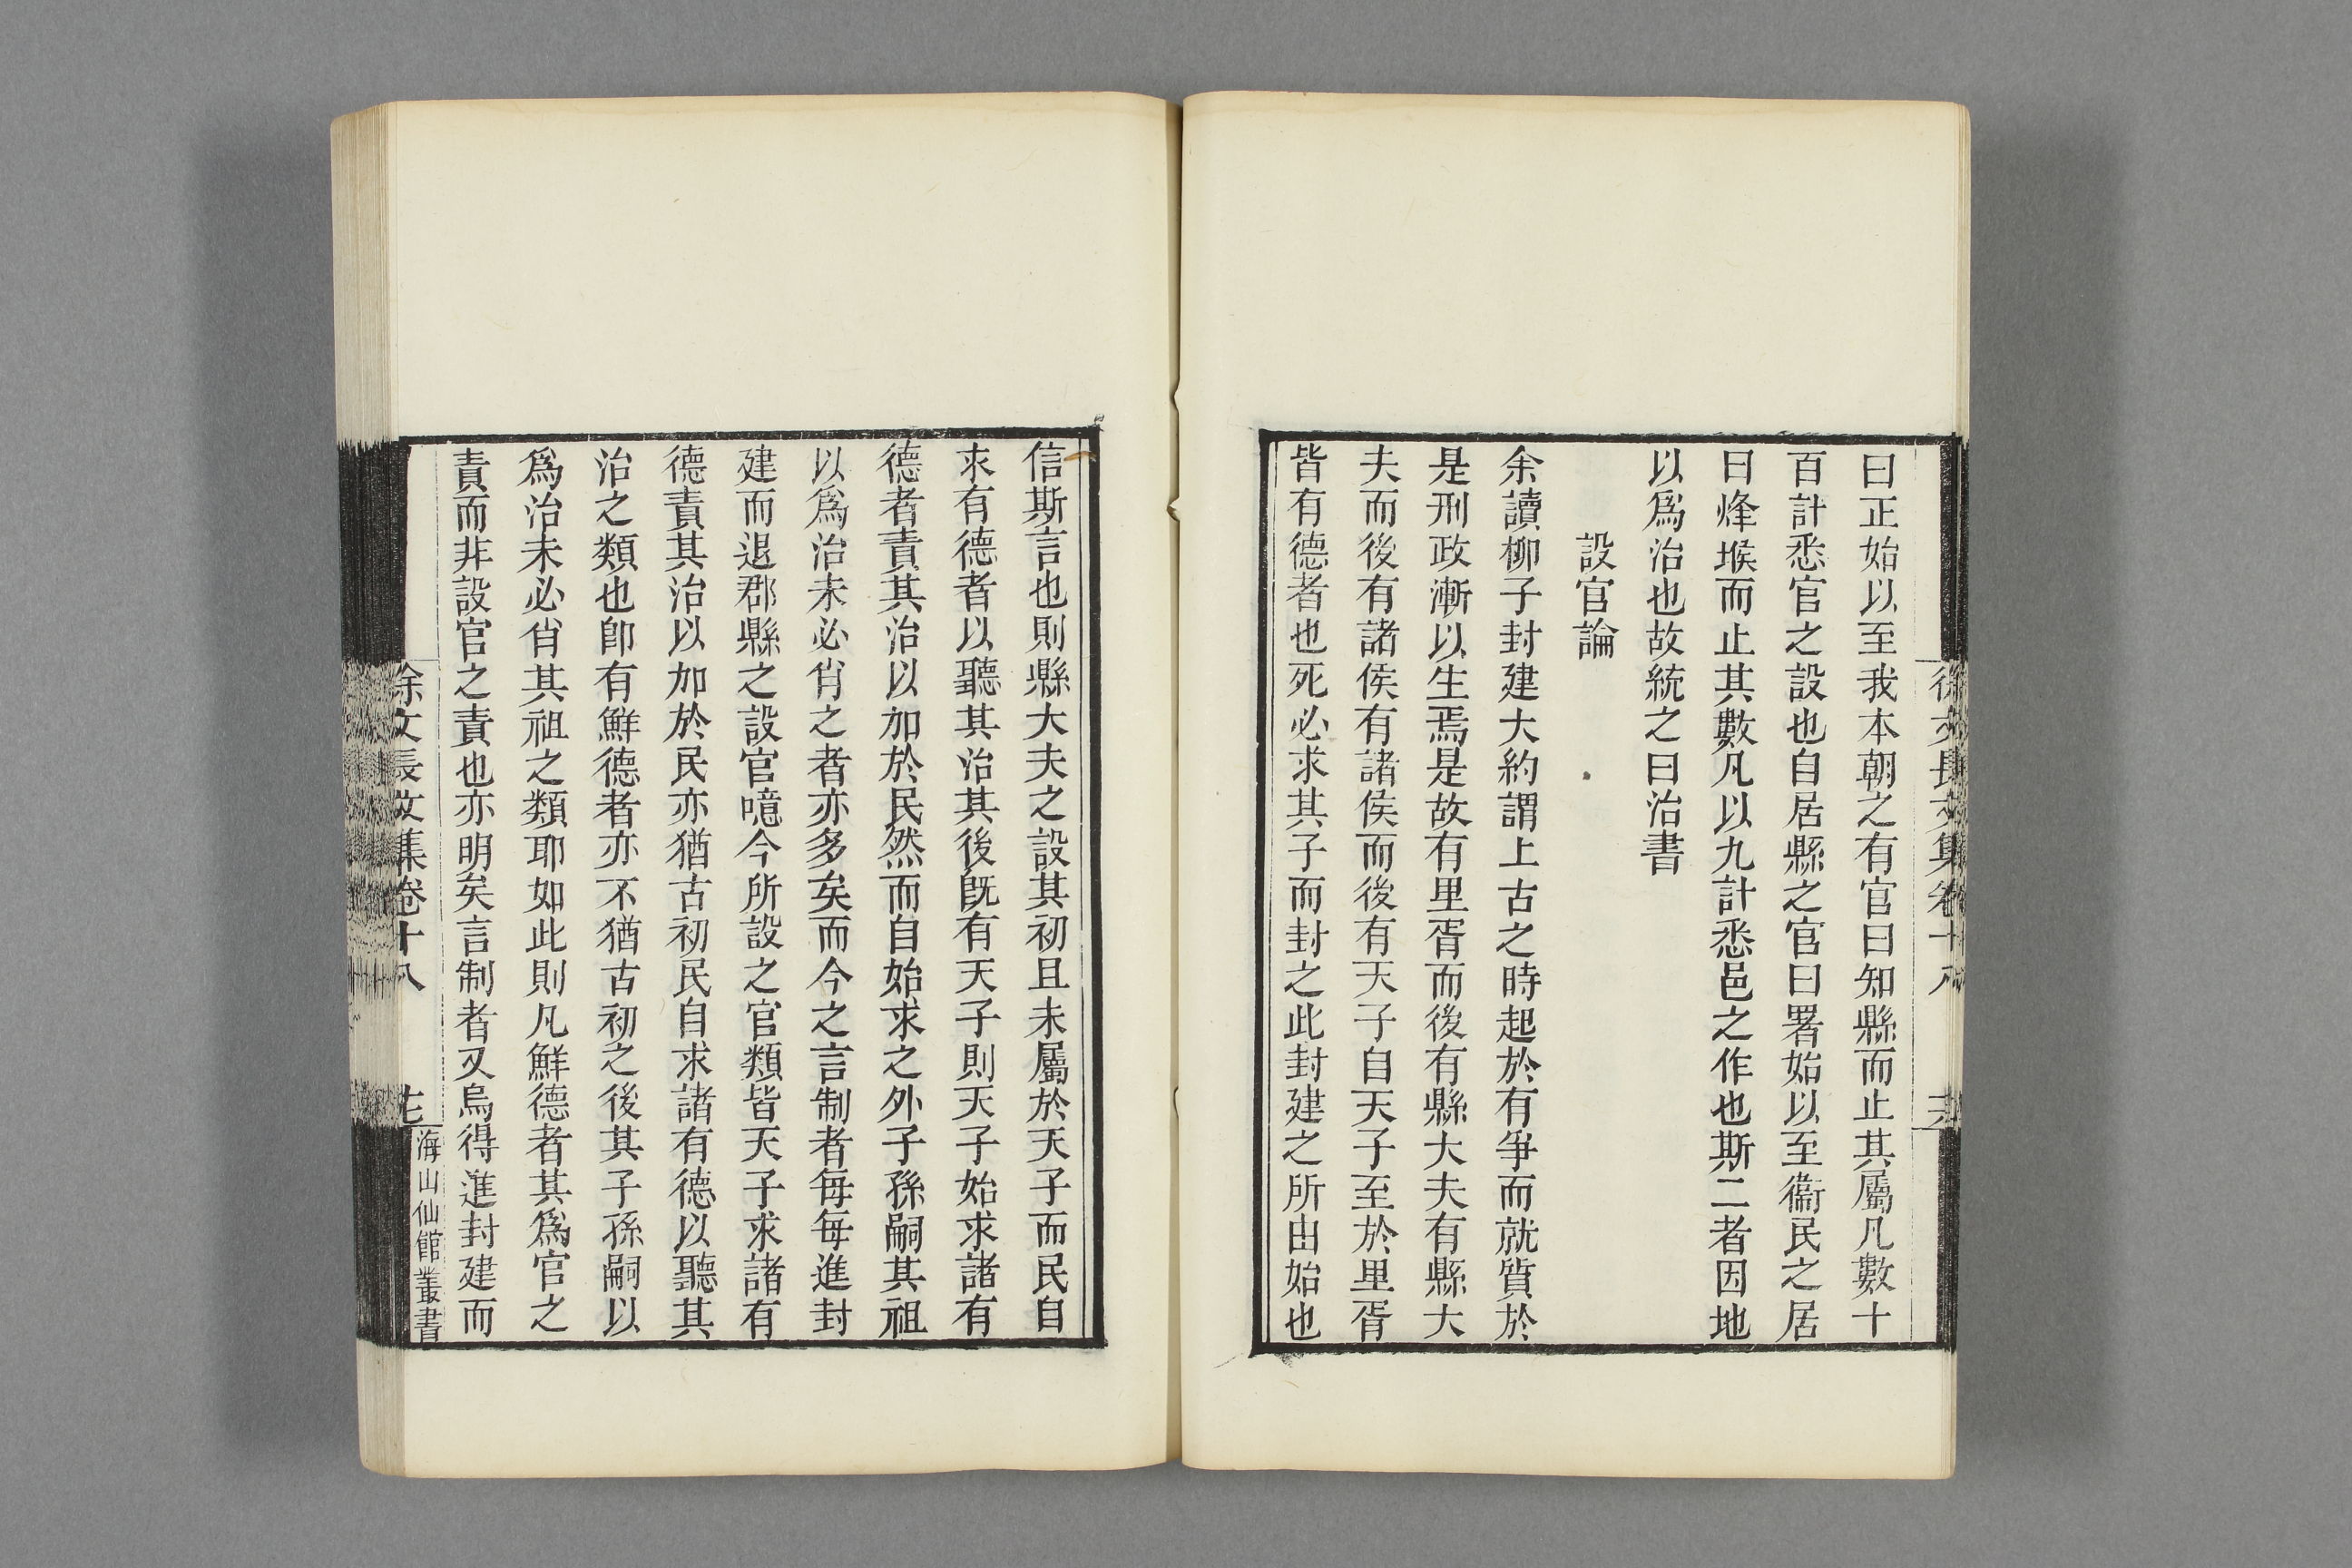 徐文長文集卷十八
曰正始以至我本朝之有官曰知縣而止其屬凡數十
百計悉官之設也自居縣之官曰署始以至衞民之居
曰烽堠而止其數凡以九計悉邑之作也斯二者因地
以爲治也故統之曰治書
設官論
余讀柳子封建大約謂上古之時起於有爭而就質於
是刑政漸以生焉是故有里胥而後有縣大夫有縣大
夫而後有諸侯有諸侯而後有天子自天子至於里胥
皆有德者也死必求其子而封之此封建之所由始也
信斯言也則縣大夫之設其初且未屬於天子而民自
求有德者以聽其治其後旣有天子則天子始求諸有
德者責其治以加於民然而自始求之外子孫嗣其祖
以爲治未必肖之者亦多矣而今之言制者每每進封
建而退郡縣之設官噫今所設之官類皆天子求諸有
德責其治以加於民亦猶古初民自求諸有德以聽其
治之類也卽有鮮德者亦不猶古初之後其子孫嗣以
爲治未必肖其祖之類耶如此則凡鮮德者其爲官之
責而非設官之責也亦明矣言制者又烏得進封建而
徐文長文集卷十八
海山仙館叢書